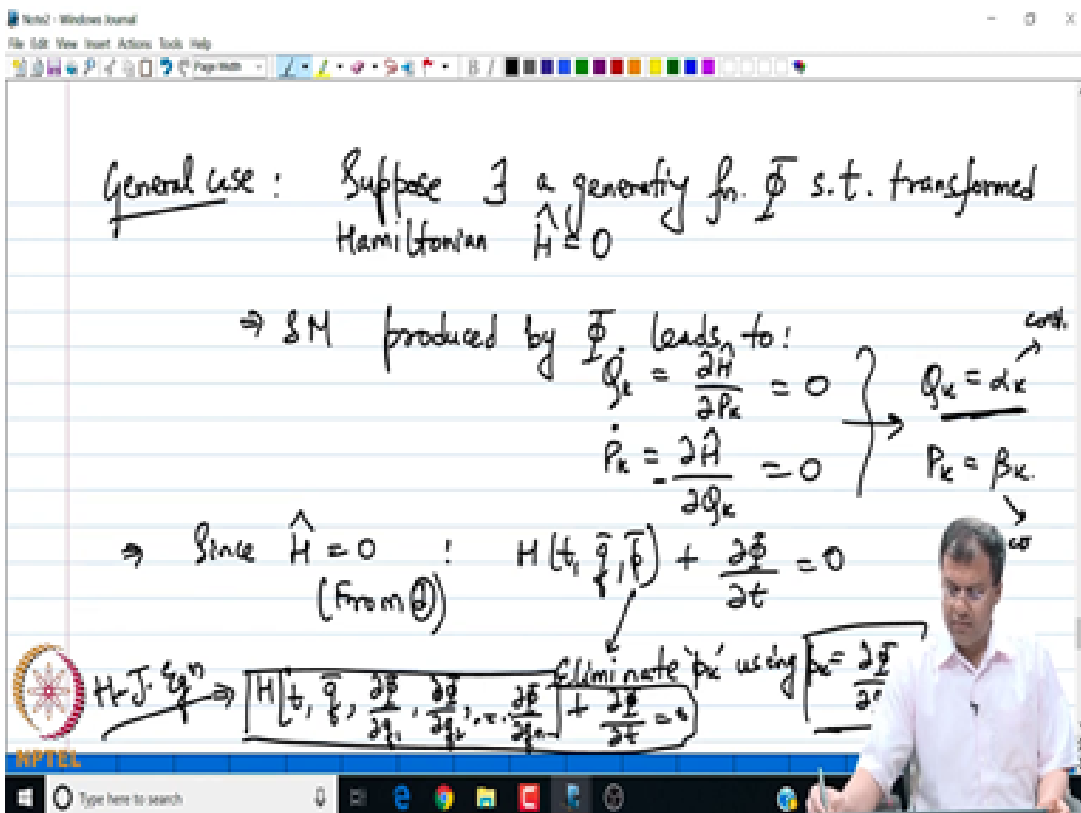 Note2 - Windows Journal
File Edit View Insert Actions Tools Help
Page Width
B I
General case : Suppose ∃ a generatiy fn. Φ s.t. transformed
Hamiltonian Ĥ = 0
⇒ SM produced by Φ leads to :
Q̇k = ∂Ĥ/∂Pk = 0
Qk = αk const.
Ṗk = -∂Ĥ/∂Qk = 0
Pk = βk
co
⇒ Since Ĥ = 0 : H(t, q̄, p̄) + ∂Φ/∂t = 0
(From ②)
Eliminate 'pk' using pk = ∂Φ
H-J. Eqn ⇒ H[t, q̄, ∂Φ/∂q1, ∂Φ/∂q2, ... ∂Φ/∂qn] + ∂Φ/∂t = 0
NPTEL
Type here to search